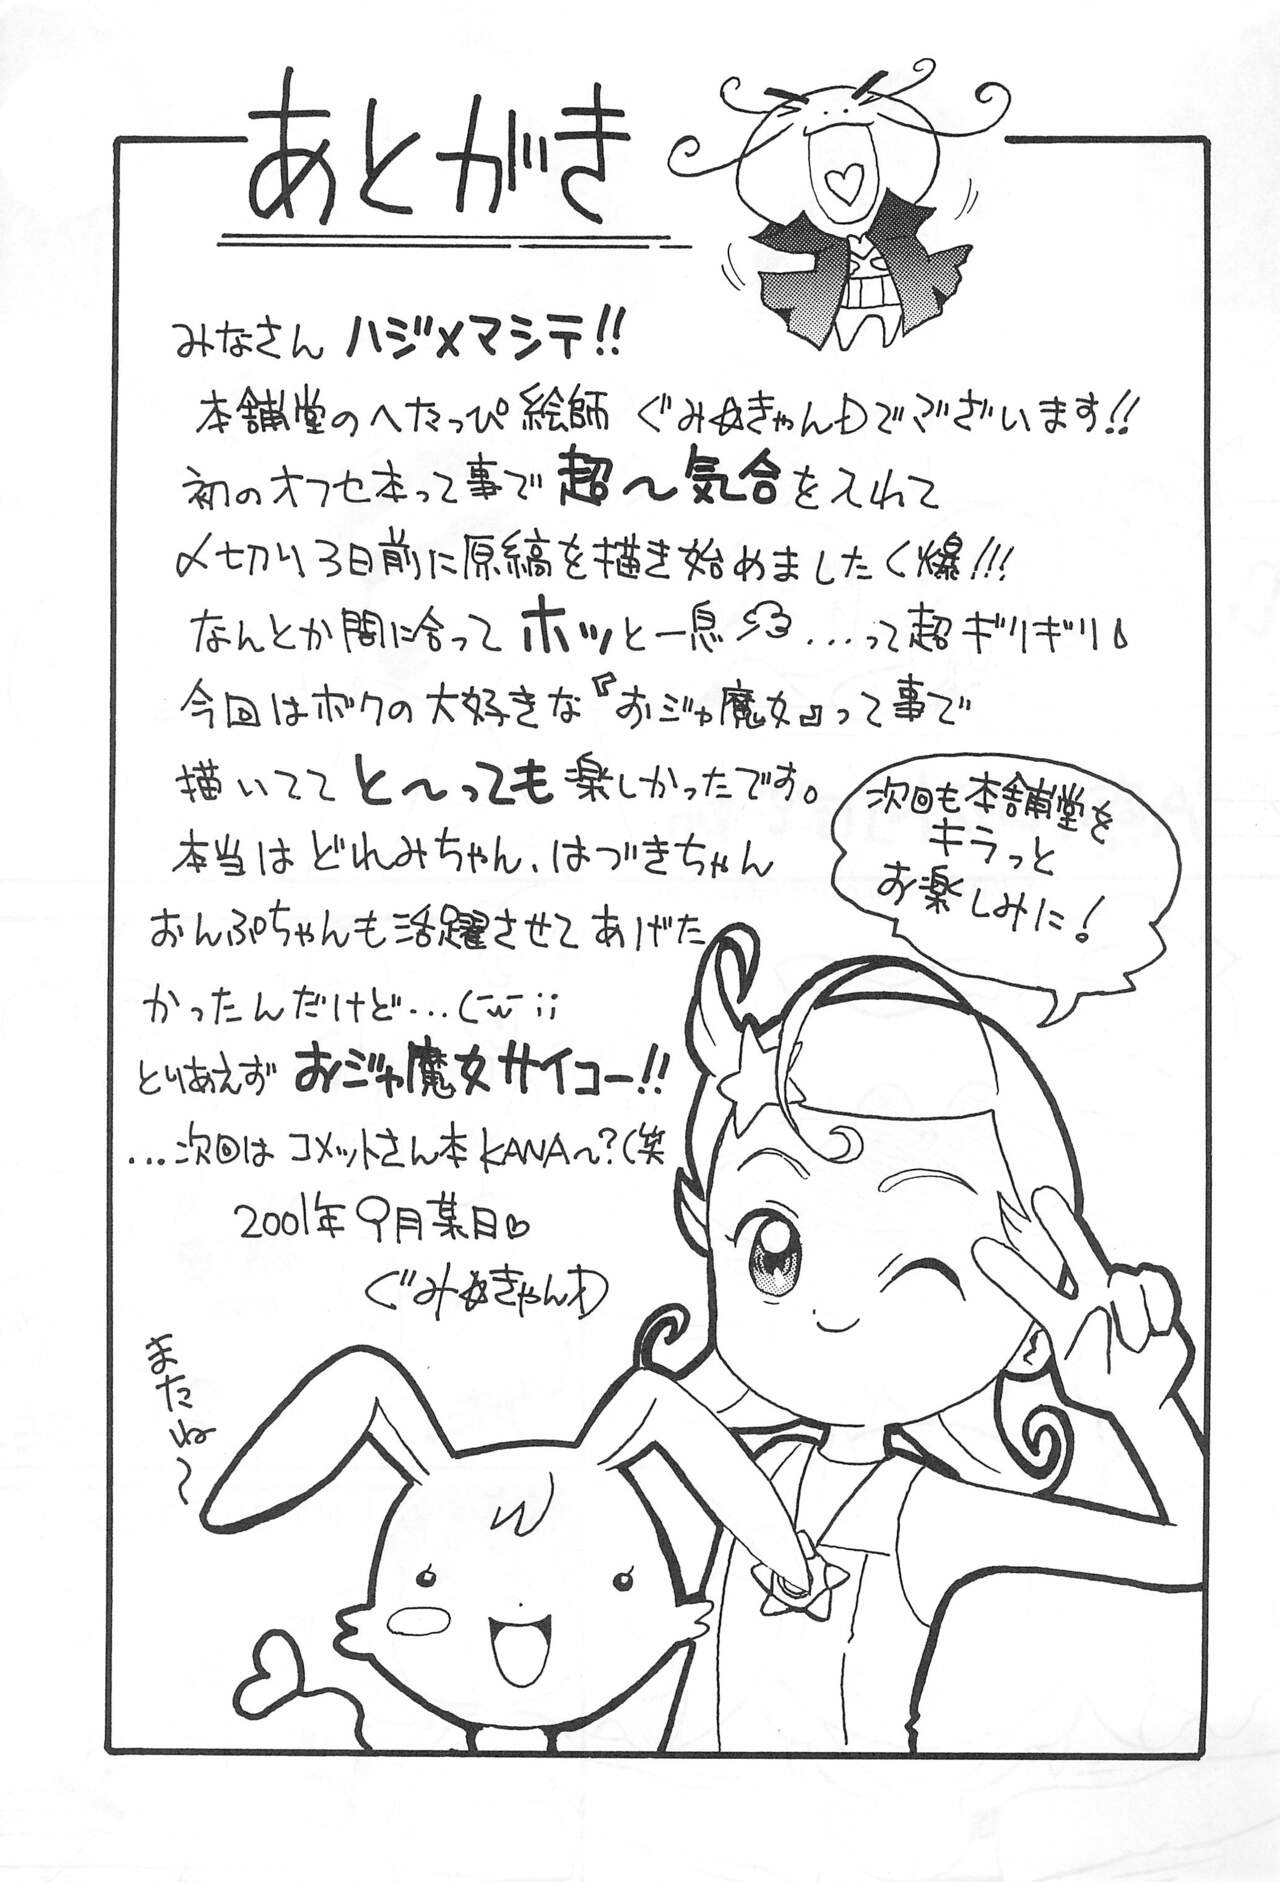 あとがき
みなさん ハジメマシテ!!
本舗堂のへたっぴ絵師 ぐみ☆きゃんDでございます!!
初のオフセ本って事で 超〜気合を入れて
〆切り3日前に原稿を描き始めました(爆!!!
なんとか間に合って ホッと一息 ...って超ギリギリ
今回はボクの大好きな『おジャ魔女』って事で
描いてて と〜っても 楽しかったです。
本当は どれみちゃん、はづきちゃん
おんぷちゃんも活躍させて あげた
かったんだけど...(-w-;;
とりあえず おジャ魔女サイコー!!
...次回は コメットさん本KANA〜?(笑
2001年 9月某日♡
ぐみ☆きゃんD
次回も本舗堂を
キラっと
お楽しみに!
またね〜